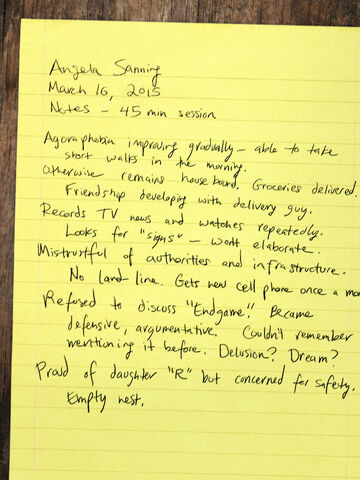 Angela Sanning
March 16, 2015
Notes - 45 min session
Agoraphobia improving gradually - able to take
short walks in the morning.
Otherwise remains housebound. Groceries delivered.
Friendship developing with delivery guy.
Records TV news and watches repeatedly.
Looks for "signs" - won't elaborate.
Mistrustful of authorities and infrastructure.
No land-line. Gets new cell phone once a mo
Refused to discuss "Endgame." Became
defensive, argumentative. Couldn't remember
mentioning it before. Delusion? Dream?
Proud of daughter "R" but concerned for safety.
Empty nest.